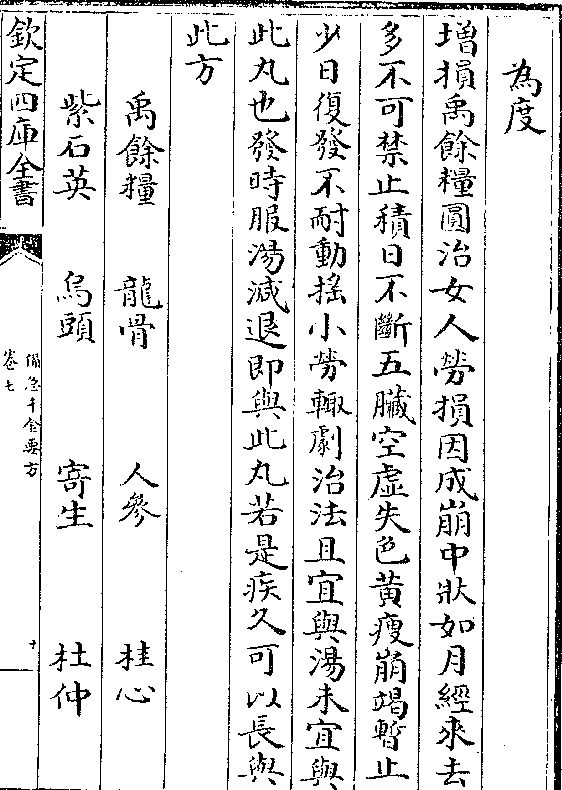 為度
増損禹餘糧圓治女人勞損因成崩中狀如月經來去
多不可禁止積日不斷五臟空虛失色黄瘦崩竭暫止
少日復發不耐動摇小勞輙劇治法且宜與湯未宜與
此丸也發時服湯減退即與此丸若是疾久可以長與
此方
禹餘糧 龍骨 人參 桂心
紫石英 烏頭 寄生 杜仲
欽定四庫全書
備急千金要方
卷七
十